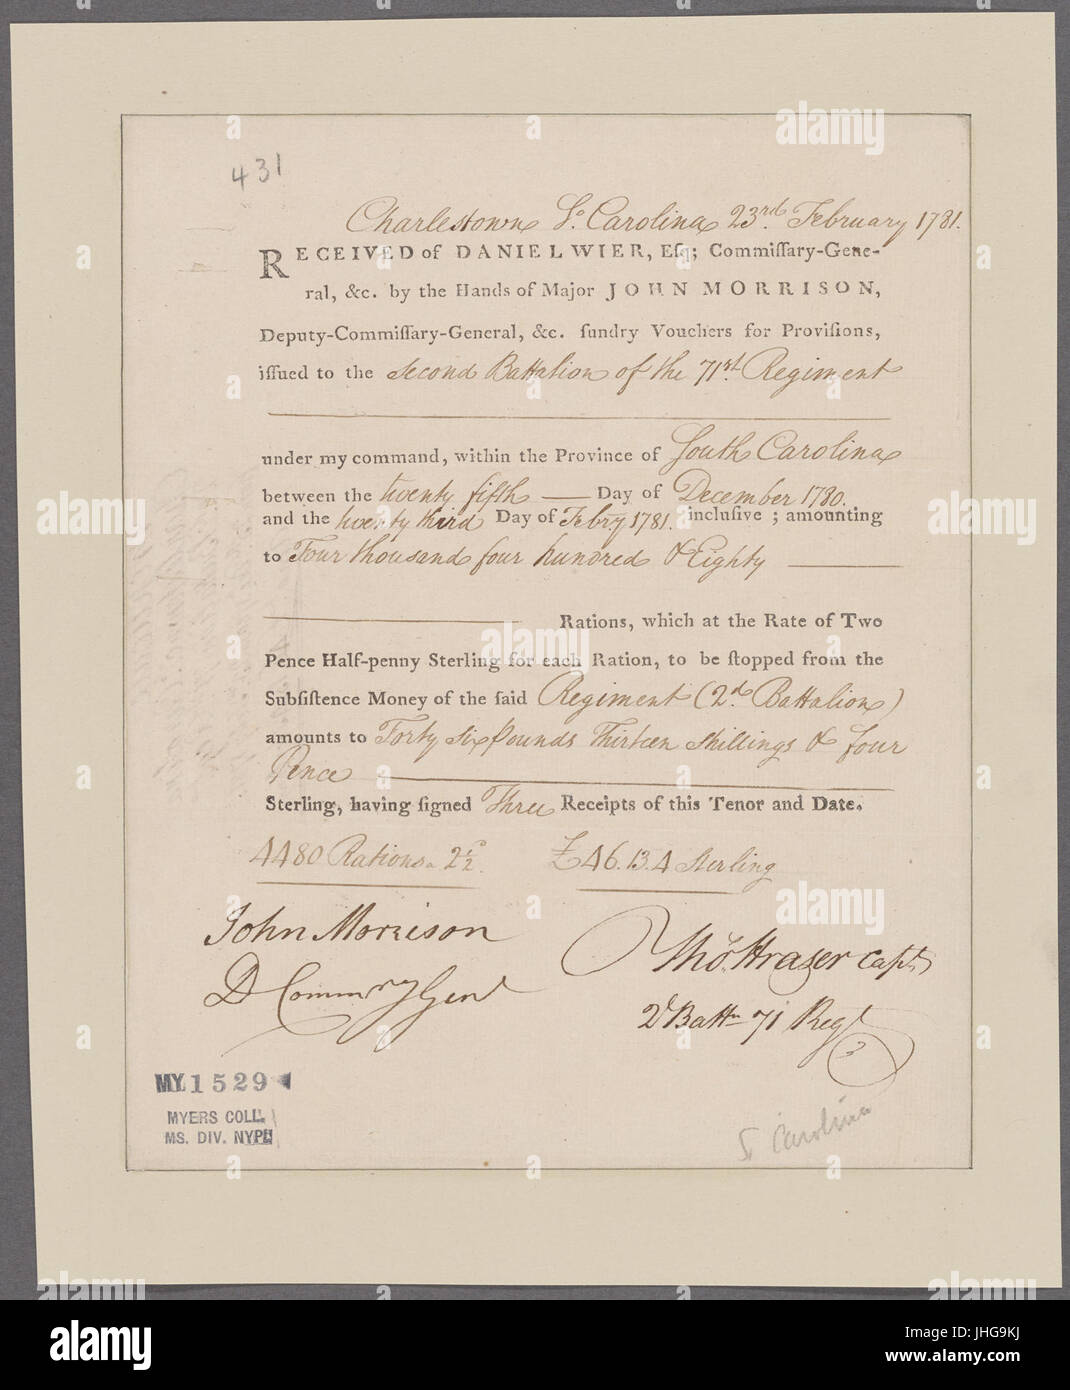 431
Charlestown So. Carolina 23rd. February 1781.
RECEIVED of DANIEL WIER, Eſq; Commiſſary-Gene-
ral, &c. by the Hands of Major JOHN MORRISON,
Deputy-Commiſſary-General, &c. ſundry Vouchers for Proviſions,
iſſued to the Second Battalion of the 71st. Regiment
under my command, within the Province of South Carolina
between the twenty fifth — Day of December 1780.
and the twenty third Day of Febry 1781. incluſive ; amounting
to Four thousand four hundred & Eighty
Rations, which at the Rate of Two
Pence Half-penny Sterling for each Ration, to be ſtopped from the
Subſiſtence Money of the ſaid Regiment (2d. Battalion)
amounts to Forty Six Pounds Thirteen Shillings & four
Pence
Sterling, having ſigned Three Receipts of this Tenor and Date.
4480 Rations a 2½. £46.13.4 Sterling
John Morrison
D Commry Genl
Thos. Frazer Capt
2d Battn 71 Regt
3
MY. 1529
MYERS COLL.
MS. DIV. NYPL
S Carolina
alamy
Image ID: JHG9KJ
www.alamy.com